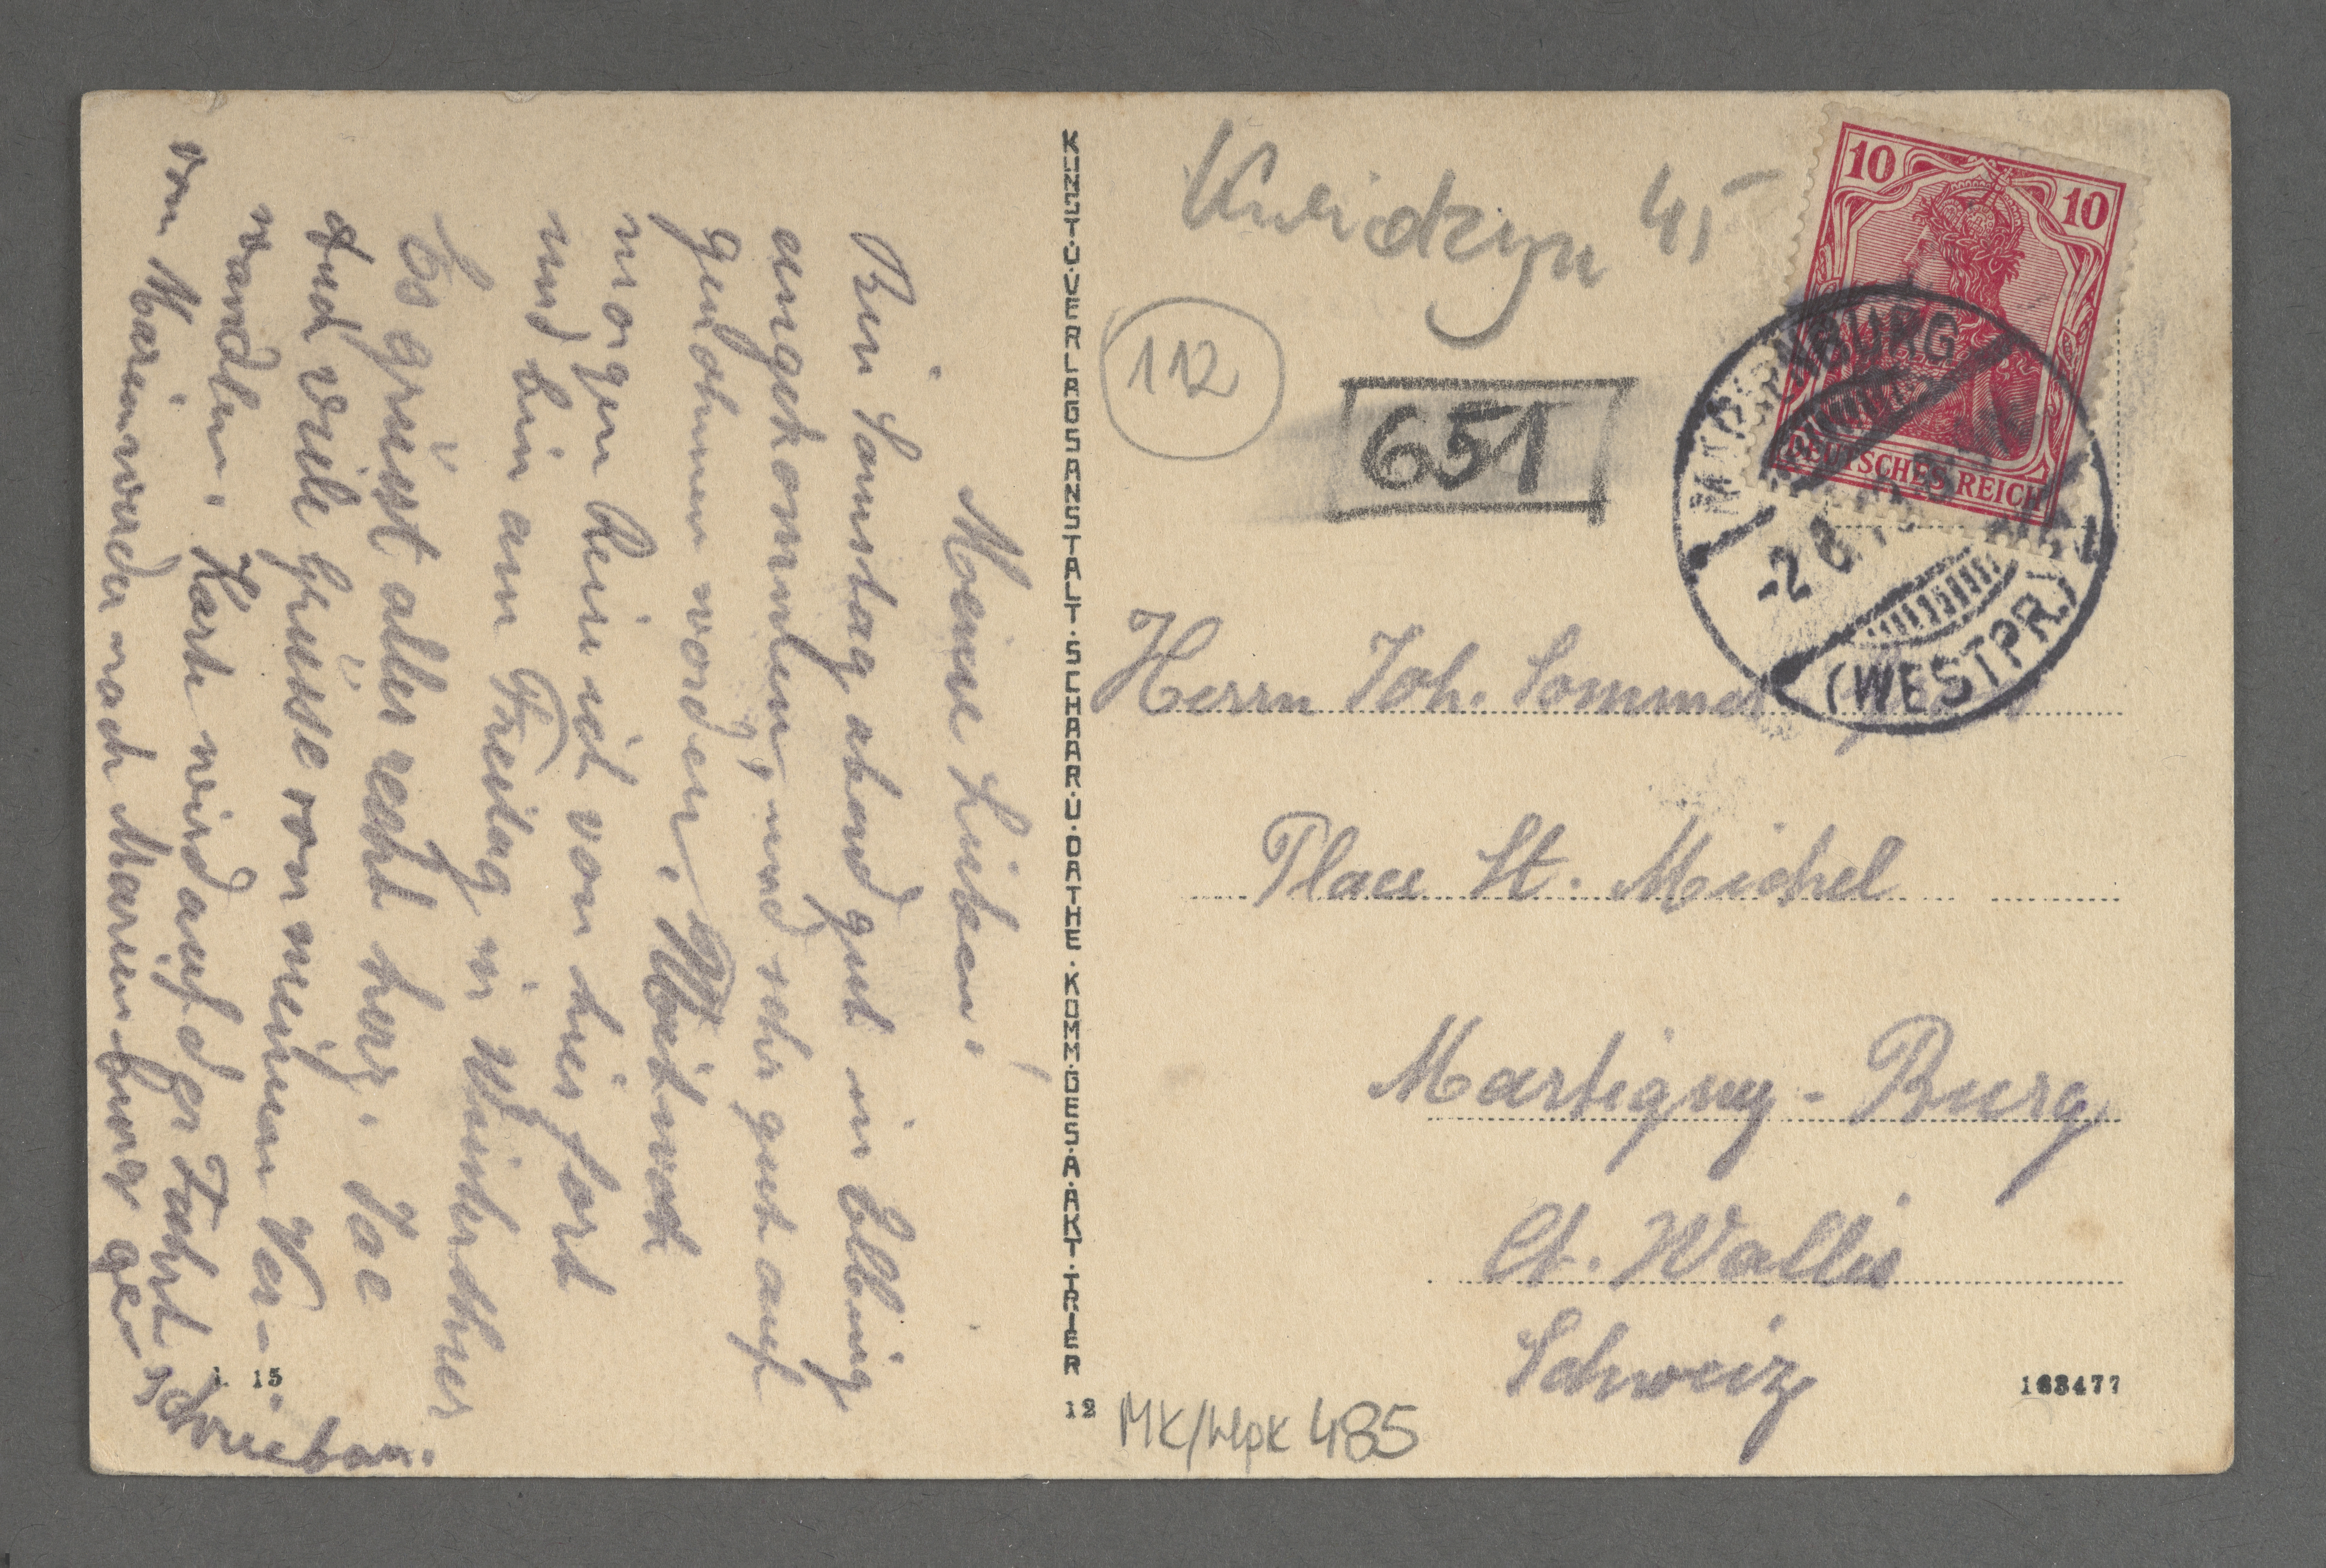 Meine Lieben!
Bin Samstag abend gut in Elbing
angekommen, und sehr gut auf
genohmen worden. Mittwoch
morgen reise ich von hier fort
und bin am Freitag in Winterthur
Es grüsst alle recht herz. Jac
und viele Grüsse von meinen Ver-
wandten. Karte wird auf der Fahrt
von Marienwerder nach Marienburg geschrieben.
KUNST·U·VERLAGSANSTALT·SCHAAR·U·DATHE·KOMM·GES·A·AKT·TRIER
1. 15
12
Kwidzyn 45
112
651
10 10
DEUTSCHES REICH
MARIENBURG
-2 8
(WESTPR.)
Herrn Joh. Sommer
Place St. Michel
Martigny-Burg
Ct. Wallis
Schweiz
163477
MK/Wpk 485